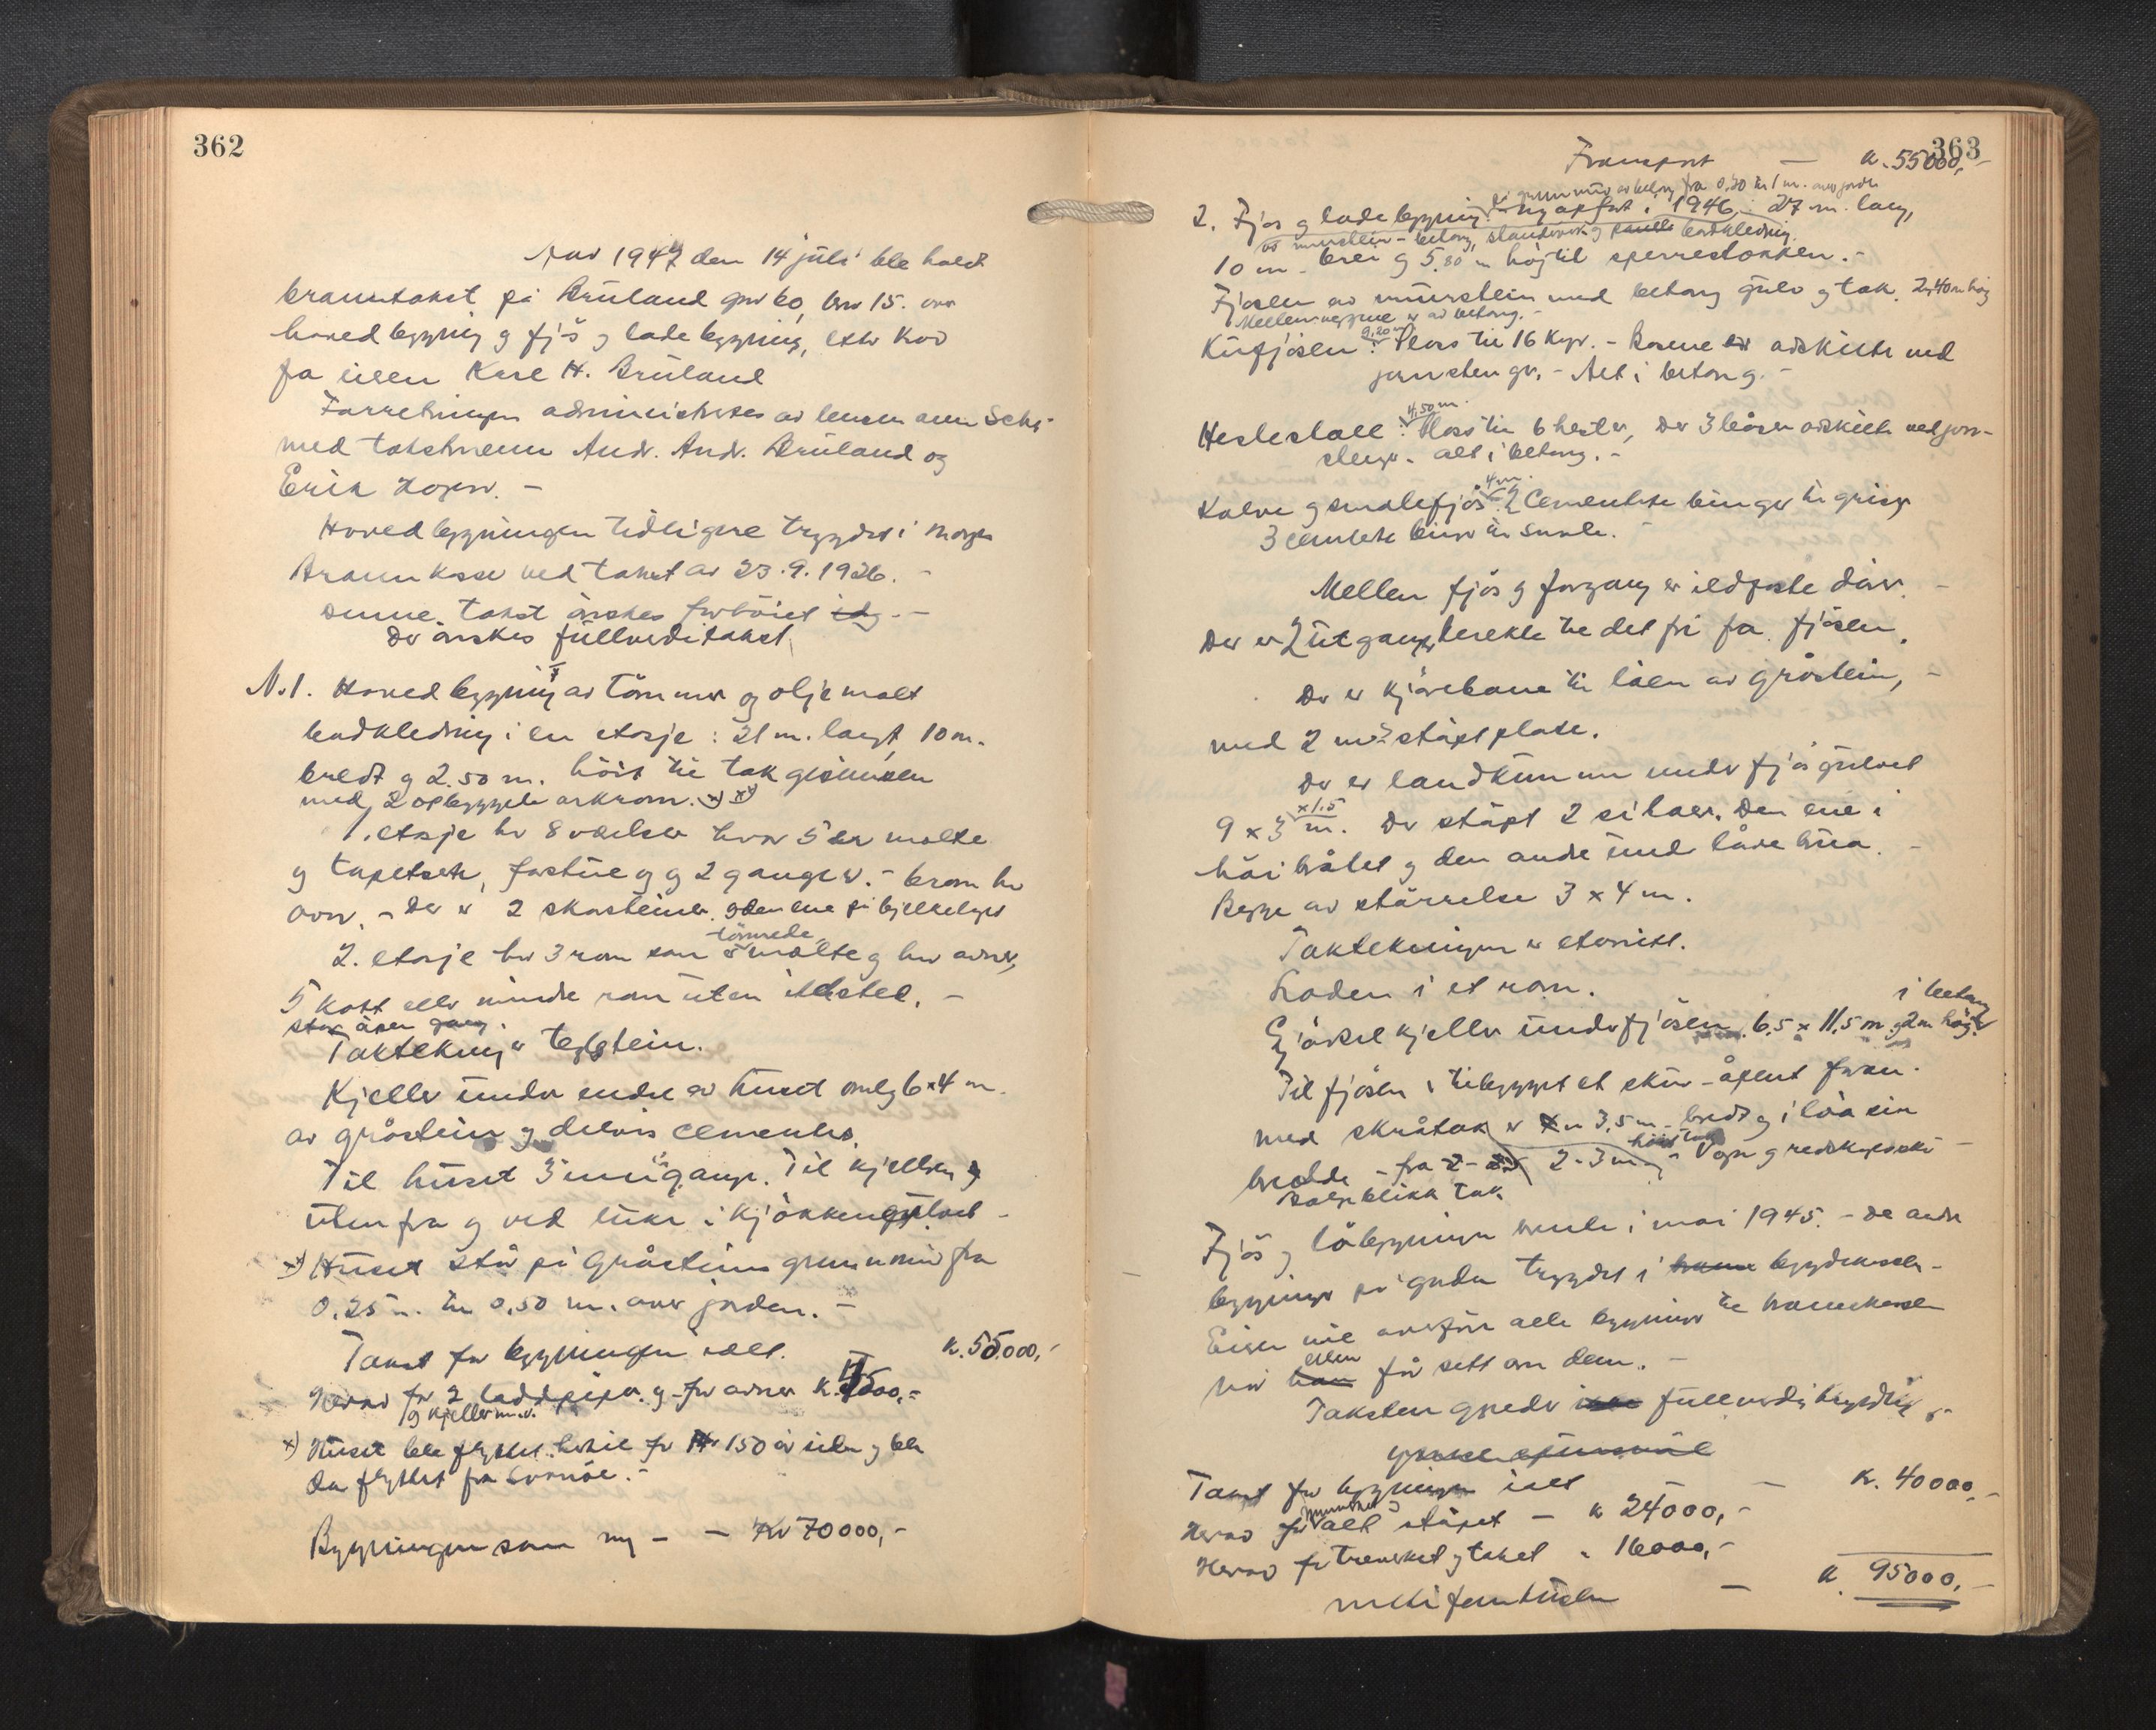 362
Aar 1947 den 14 juli ble holdt
branntakst på Bruland gnr 60, bnr 15. over
hovedbygning og fjös og ladebygning, etter krav
fra eieren Karl H. Bruland
Forretningen administreres av lensmann
med takstmenn Andr. Andr. Bruland og
Erik
Hovedbygningen tidligere trygdet i Norges
Brannkasse ved takst av 23.9.1926. -
Denne takst önskes forhöiet
Der önskes fullverditakst
N.1. Hovedbygning av tömmer og oljemalt
bordkledning i en etasje: 21 m. langt, 10 m.
bredt og 2.50 m. höit til takgesimsen
med 2 opbyggede arkrom. x) xx)
1. etasje har 8 værelser hvor 5 er malte
og tapetserte, forstue og 2 ganger. - 6 rom har
ovn. - Der er 2 skorsteiner. og den ene på bjelkelaget
2. etasje har 3 rom som er tömrede malte og har ovner,
5 kott eller mindre rom uten ildsted. -
stor åpen gang.
Taktekning er teglstein.
Kjeller under endel av huset omlag 6 x 4 m.
av gråstein og delvis cementert.
Til huset 3 innganger. Til kjelleren
utenfra og ved luke i kjökkengulvet -
xx) Huset står på gråsteins grunnmur fra
0.25 m. til 0,50 m. over jorden. -
Takst for bygningen ialt. K. 55.000,-
Herav for 2 og for ovner K. 1500,-
og kjeller m.v.
x) Huset ble flyttet hertil for 150 år siden og ble
da flyttet fra
Bygningen som ny - - Kr 70000,-
363
Transport - K. 55000,-
på grunnmur av betong fra 0,20 til 1 m. over jorden
2. Fjös og ladebygning nyopfört i 1946, 27 m. lang,
av murstein - betong, stenderverk og bordkledning.
10 m. brei og 5.80 m höj til sperrestokken. -
Fjösen av murstein med betong gulv og tak. 2,40 m höj
Mellemveggene er av betong. -
Kufjösen 9,20 m: Plass til 16 kyr. - Basene er adskilte med
jernstenger. - Alt i betong. -
Hestestall 4,50 m.: Plass til 6 hester, der 3 båser adskilte ved jern-
stenger. alt i betong. -
Kalve og smalefjös 4 m. 2 Cementerte binger til griser
3 cementerte binger til smale.
Mellem fjös og forgang er ildfaste dörer. -
Der er 2 utganger direkte til det fri fra fjösen.
Der er kjörebane til låen av gråstein, -
med 2 m² stöpt plate.
Der er landkum under fjösgulvet
9 x 3 x 1,5 m. Der stöpt 2 siloer. Den ene i
og den andre under
Begge av störrelse 3 x 4 m.
Taktekningen er eternitt.
Loden i et rom.
Gjödselkjeller under fjösen 6,5 x 11,5 m og 2 m höj i betong
Til fjösen er tilbygget et skur - åpent foran.
med skråtak er 3,5 m bredt og i löa sin
bredde - fra 2 - 3 m Vogn og redskapsskur -
Bölgeblikk tak
Fjös og löbygningen brente i mai 1945. - de andre
bygninger på garden trygdet i bygdekassen -
Eieren vil overföre alle bygninger til brannkassen
når eieren får sett om dem. -
Taksten gjelder fullverditrygding
Takst for bygningen ialt - K. 40000,-
Herav for murverket alt stöpet - K 24000,-
Herav for treverket og taket " 16000,-
K 95000,-